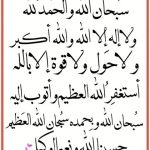 سبحان الله والحمد لله
ولا إله إلا الله والله أكبر
ولا حول ولا قوة إلا بالله
أستغفر الله العظيم وأتوب إليه
سبحان الله وبحمده سبحان الله العظيم
حسبنا الله ونعم الوكيل